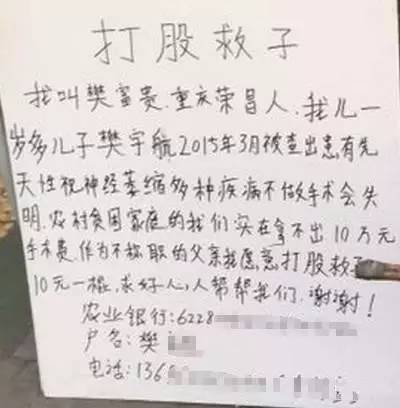 打股救子
我叫樊富贵.重庆荣昌人.我儿一
岁多儿子樊宇航2015年3月被查出患有先
天性视神经萎缩多种疾病不做手术会失
明.农村贫困家庭的我们实在拿不出10万元
手术费.作为不称职的父亲我愿意打股救子
10元一棍.求好心人帮帮我们.谢谢!
农业银行:6228
户名:樊
电话:136